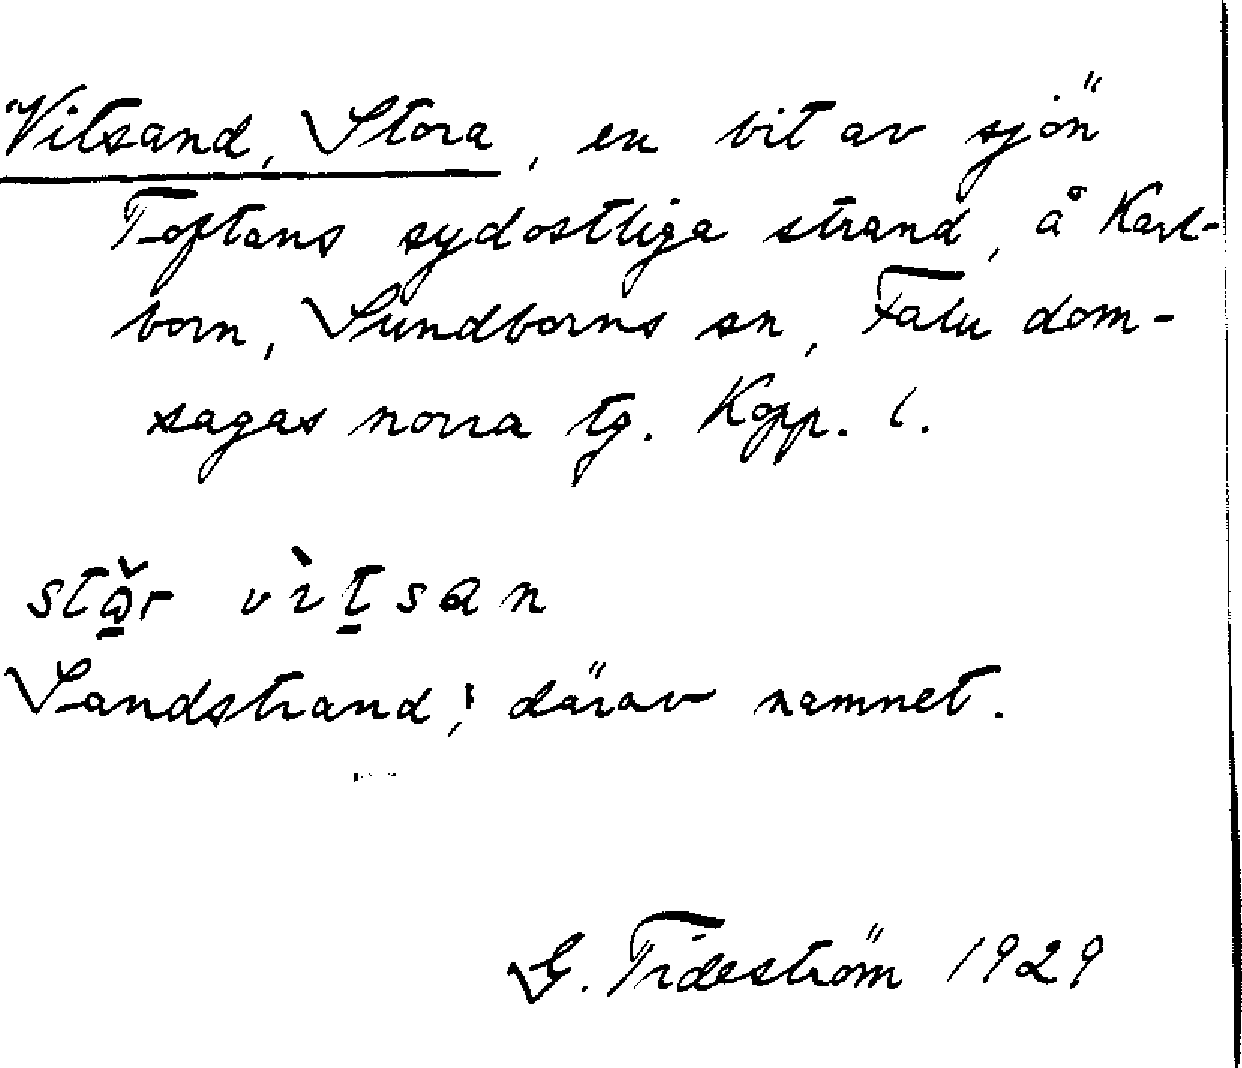 Vitsand, Stora, en bit av sjön
Toftans sydostliga strand, å Karl-
born, Sundborns sn, Falu dom-
sagas norra tg. Kopp. l.
står vìtsan
Sandstrand; därav namnet.
G. Tideström 1929